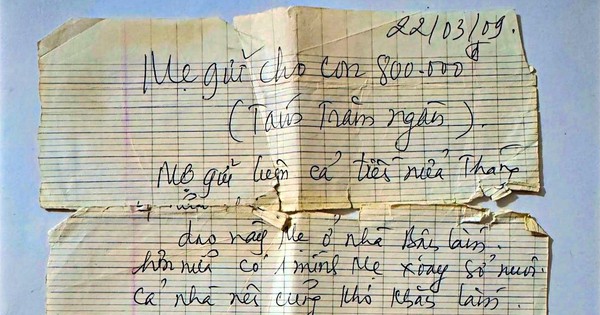 22/03/09.
Mẹ gửi cho con 800.000đ
(Tám Trăm ngàn).
Mẹ gửi luôn cả tiền nửa Tháng
dạo này Mẹ ở nhà Bận lắm.
hơn nữa có 1 mình Mẹ xoay sở nuôi
cả nhà nên cũng khó khăn lắm.